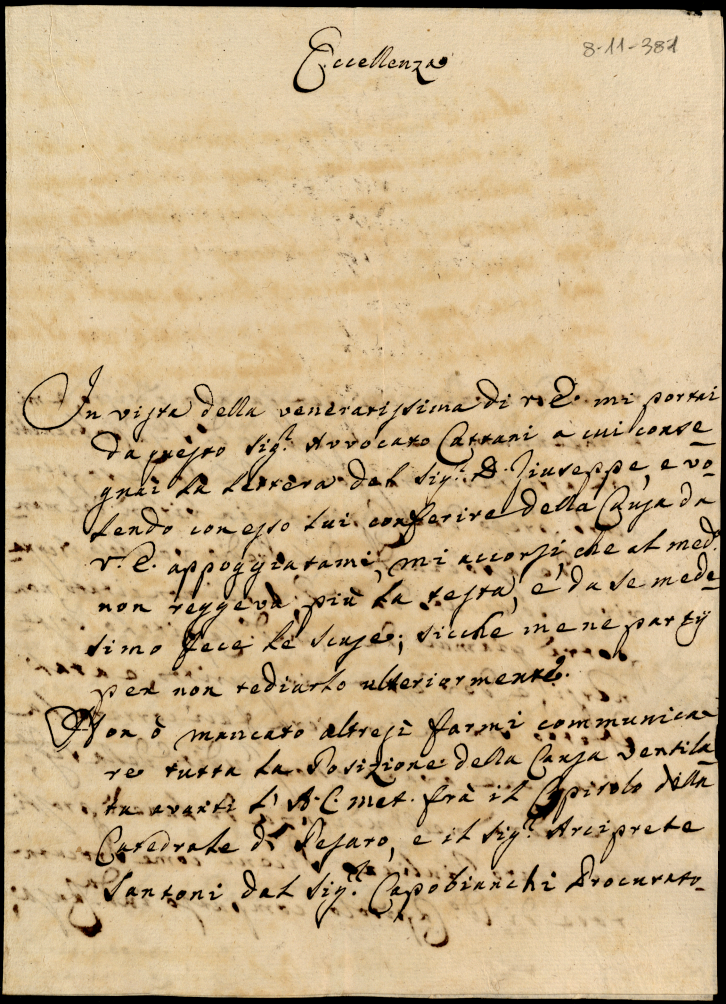 8-11-381
Eccellenza
In vista della veneratissima di V. E. mi portai
da questo Sig.r Avvocato Cattani a cui conse-
gnai la lettera del Sig.r D. Giuseppe, e vo-
lendo con esso lui conferire della Causa da
V. E. appoggiatami, mi accorsi, che al med.o
non reggeva più la testa, e da se mede-
simo fece le scuse; sicche me ne partij
per non tediarlo ulteriormente.
Non ò mancato altresì farmi communica-
re tutta la Posizione della Causa ventila-
ta avanti l' A. C. met. frà il Capitolo della
Catedrale di Pesaro, e il Sig.r Arciprete
Santoni dal Sig.r Capobianchi Procurato-